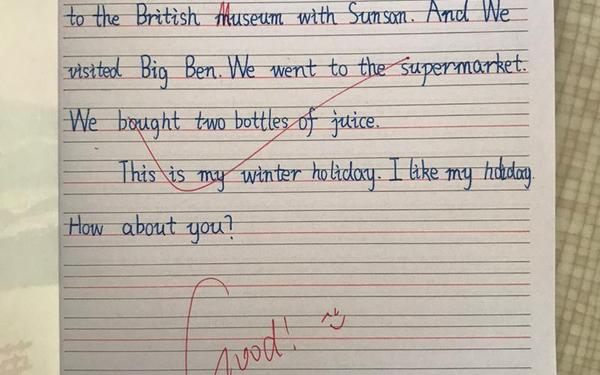 to the British Museum with Sunsan. And We
visited Big Ben. We went to the supermarket.
We bought two bottles of juice.
This is my winter holiday. I like my holiday.
How about you?
Good!